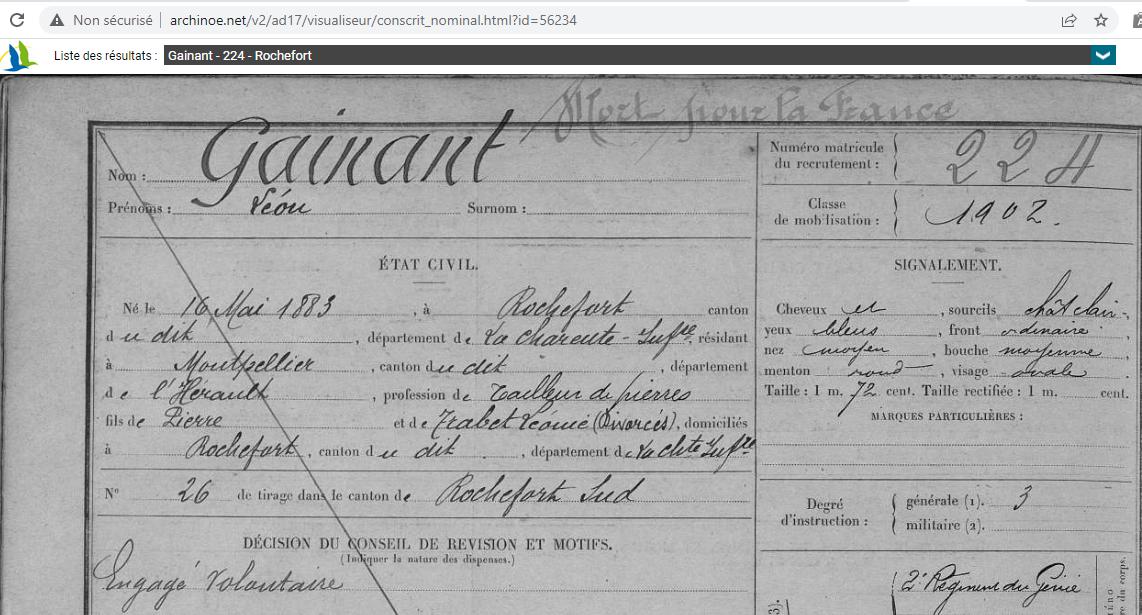 Non sécurisé | archinoe.net/v2/ad17/visualiseur/conscrit_nominal.html?id=56234
Liste des résultats : Gainant - 224 - Rochefort
Mort pour la France
Nom : Gainant
Prénoms : Léon Surnom :
Numéro matricule du recrutement : 224
Classe de mobilisation : 1902.
ÉTAT CIVIL.
Né le 16 Mai 1883, à Rochefort canton
du dit, département de La Charente-Infre, résidant
à Montpellier, canton du dit, département
de l'Hérault, profession de Tailleur de pierres
fils de Pierre et de Trabet Léonie (Divorcés), domiciliés
à Rochefort, canton du dit, département de La chte Infre
N° 26 de tirage dans le canton de Rochefort Sud
DÉCISION DU CONSEIL DE REVISION ET MOTIFS.
(Indiquer la nature des dispenses.)
Engagé Volontaire
SIGNALEMENT.
Cheveux et, sourcils chât clair,
yeux bleus, front ordinaire
nez moyen, bouche moyenne
menton rond, visage ovale
Taille : 1 m. 72 cent. Taille rectifiée : 1 m. cent.
MARQUES PARTICULIÈRES :
Degré d'instruction : générale (1). 3
militaire (2).
2e Régiment du Génie
du corps.